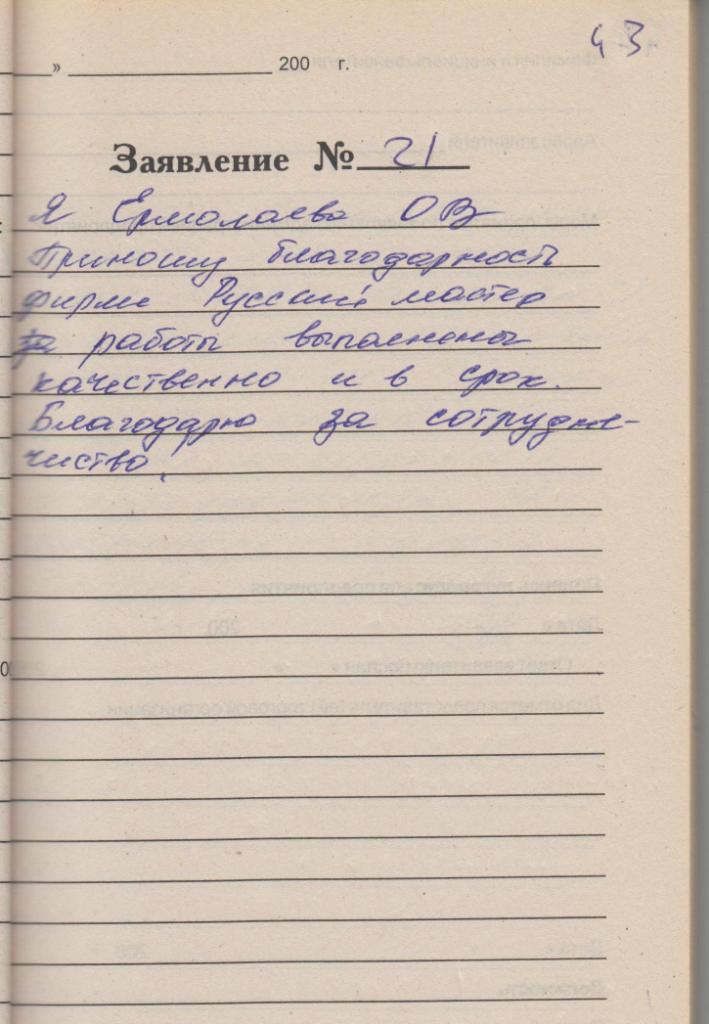 43
» 200 г.
Заявление № 21
Я Ермолаева ОВ
Приношу благодарность
фирме Русский мастер
за работы выполнены
качественно и в срок.
Благодарю за сотрудни-
чество.